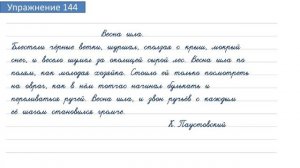 Упражнение 144
Весна шла.
Блестели чёрные ветки, шуршал, сползая с крыш, мокрый
снег, и весело шумел за околицей сырой лес. Весна шла по
полям, как молодая хозяйка. Стоило ей только посмотреть
на овраг, как в нём тотчас начинал булькать и
переливаться ручей. Весна шла, и звон ручьёв с каждым
её шагом становился громче.
К. Паустовский